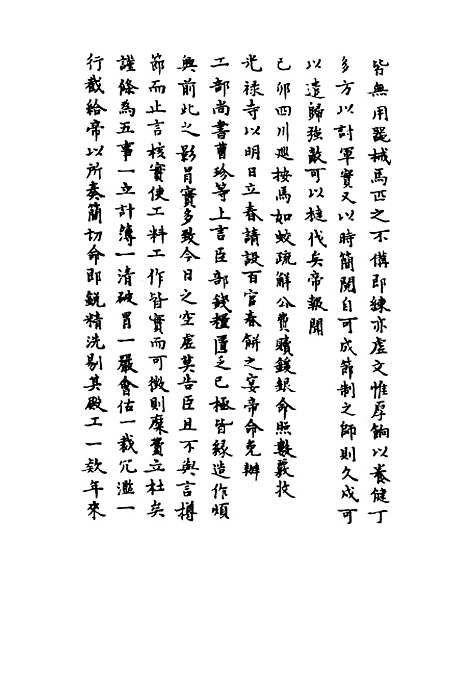 皆無用器械馬匹之不備即練亦虛文惟厚餉以養健丁
多方以討軍實又以時簡閱自可成節制之師則久戍可
以遣歸強敵可以撻伐矣帝報聞
己卯四川廵按馬如蛟疏解公費贖鍰銀命照數嚴收
光祿寺以明日立春請設百官春餅之宴帝命免辦
工部尚書曹珍等上言臣部錢糧匱乏已極皆緣造作頻
興前此之影冒實多致今日之空虛莫告臣且不與言樽
節而止言核實使工料工作皆實而可徴則糜費立杜矣
謹條為五事一立計簿一清破冒一嚴會估一裁冗濫一
行截給帝以所奏簡切命即銳精洗剔其殿工一欵年來